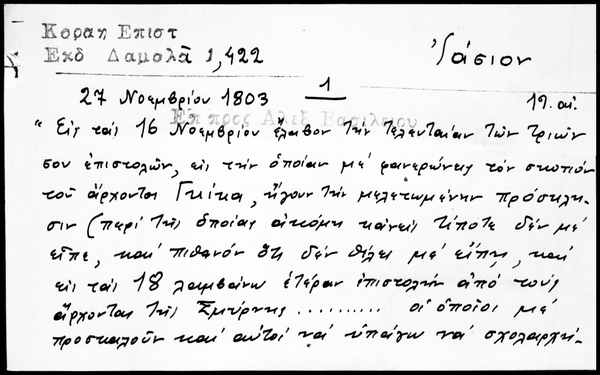 Κοραη Επιστ
Εκδ Δαμαλᾶ 1,422
Ἰάσιον
1
27 Νοεμβρίου 1803
19. αἰ.
Επ προς Αλεξ Βασιλειου
"Εἰς ταὶς 16 Νοεμβρίου ἔλαβον τὴν τελευταίαν τῶν τριῶν
σου ἐπιστολῶν, εἰς τὴν ὁποίαν μὲ φανερώνεις τὸν σκοπὸν
τοῦ ἄρχοντος Γκίκα, ἤγουν τὴν μελετωμένην πρόσκλη-
σιν (περὶ τῆς ὁποίας ἀκόμη κανεὶς τίποτε δὲν μὲ
εἶπε, καὶ πιθανὸν ὅτι δὲν θέλει μὲ εἴπῃ, καὶ
εἰς ταὶς 18 λαμβάνω ἑτέραν ἐπιστολὴν ἀπὸ τοὺς
ἄρχοντας τῆς Σμύρνης .......... οἱ ὁποῖοι μὲ
προσκαλοῦν καὶ αὐτοὶ νὰ ὑπάγω νὰ σχολαρχή-